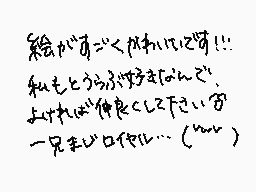 絵がすごくかわいいです!!!
私もとうらぶ好きなんで、
よければ仲良くして下さい
一兄まじロイヤル…(